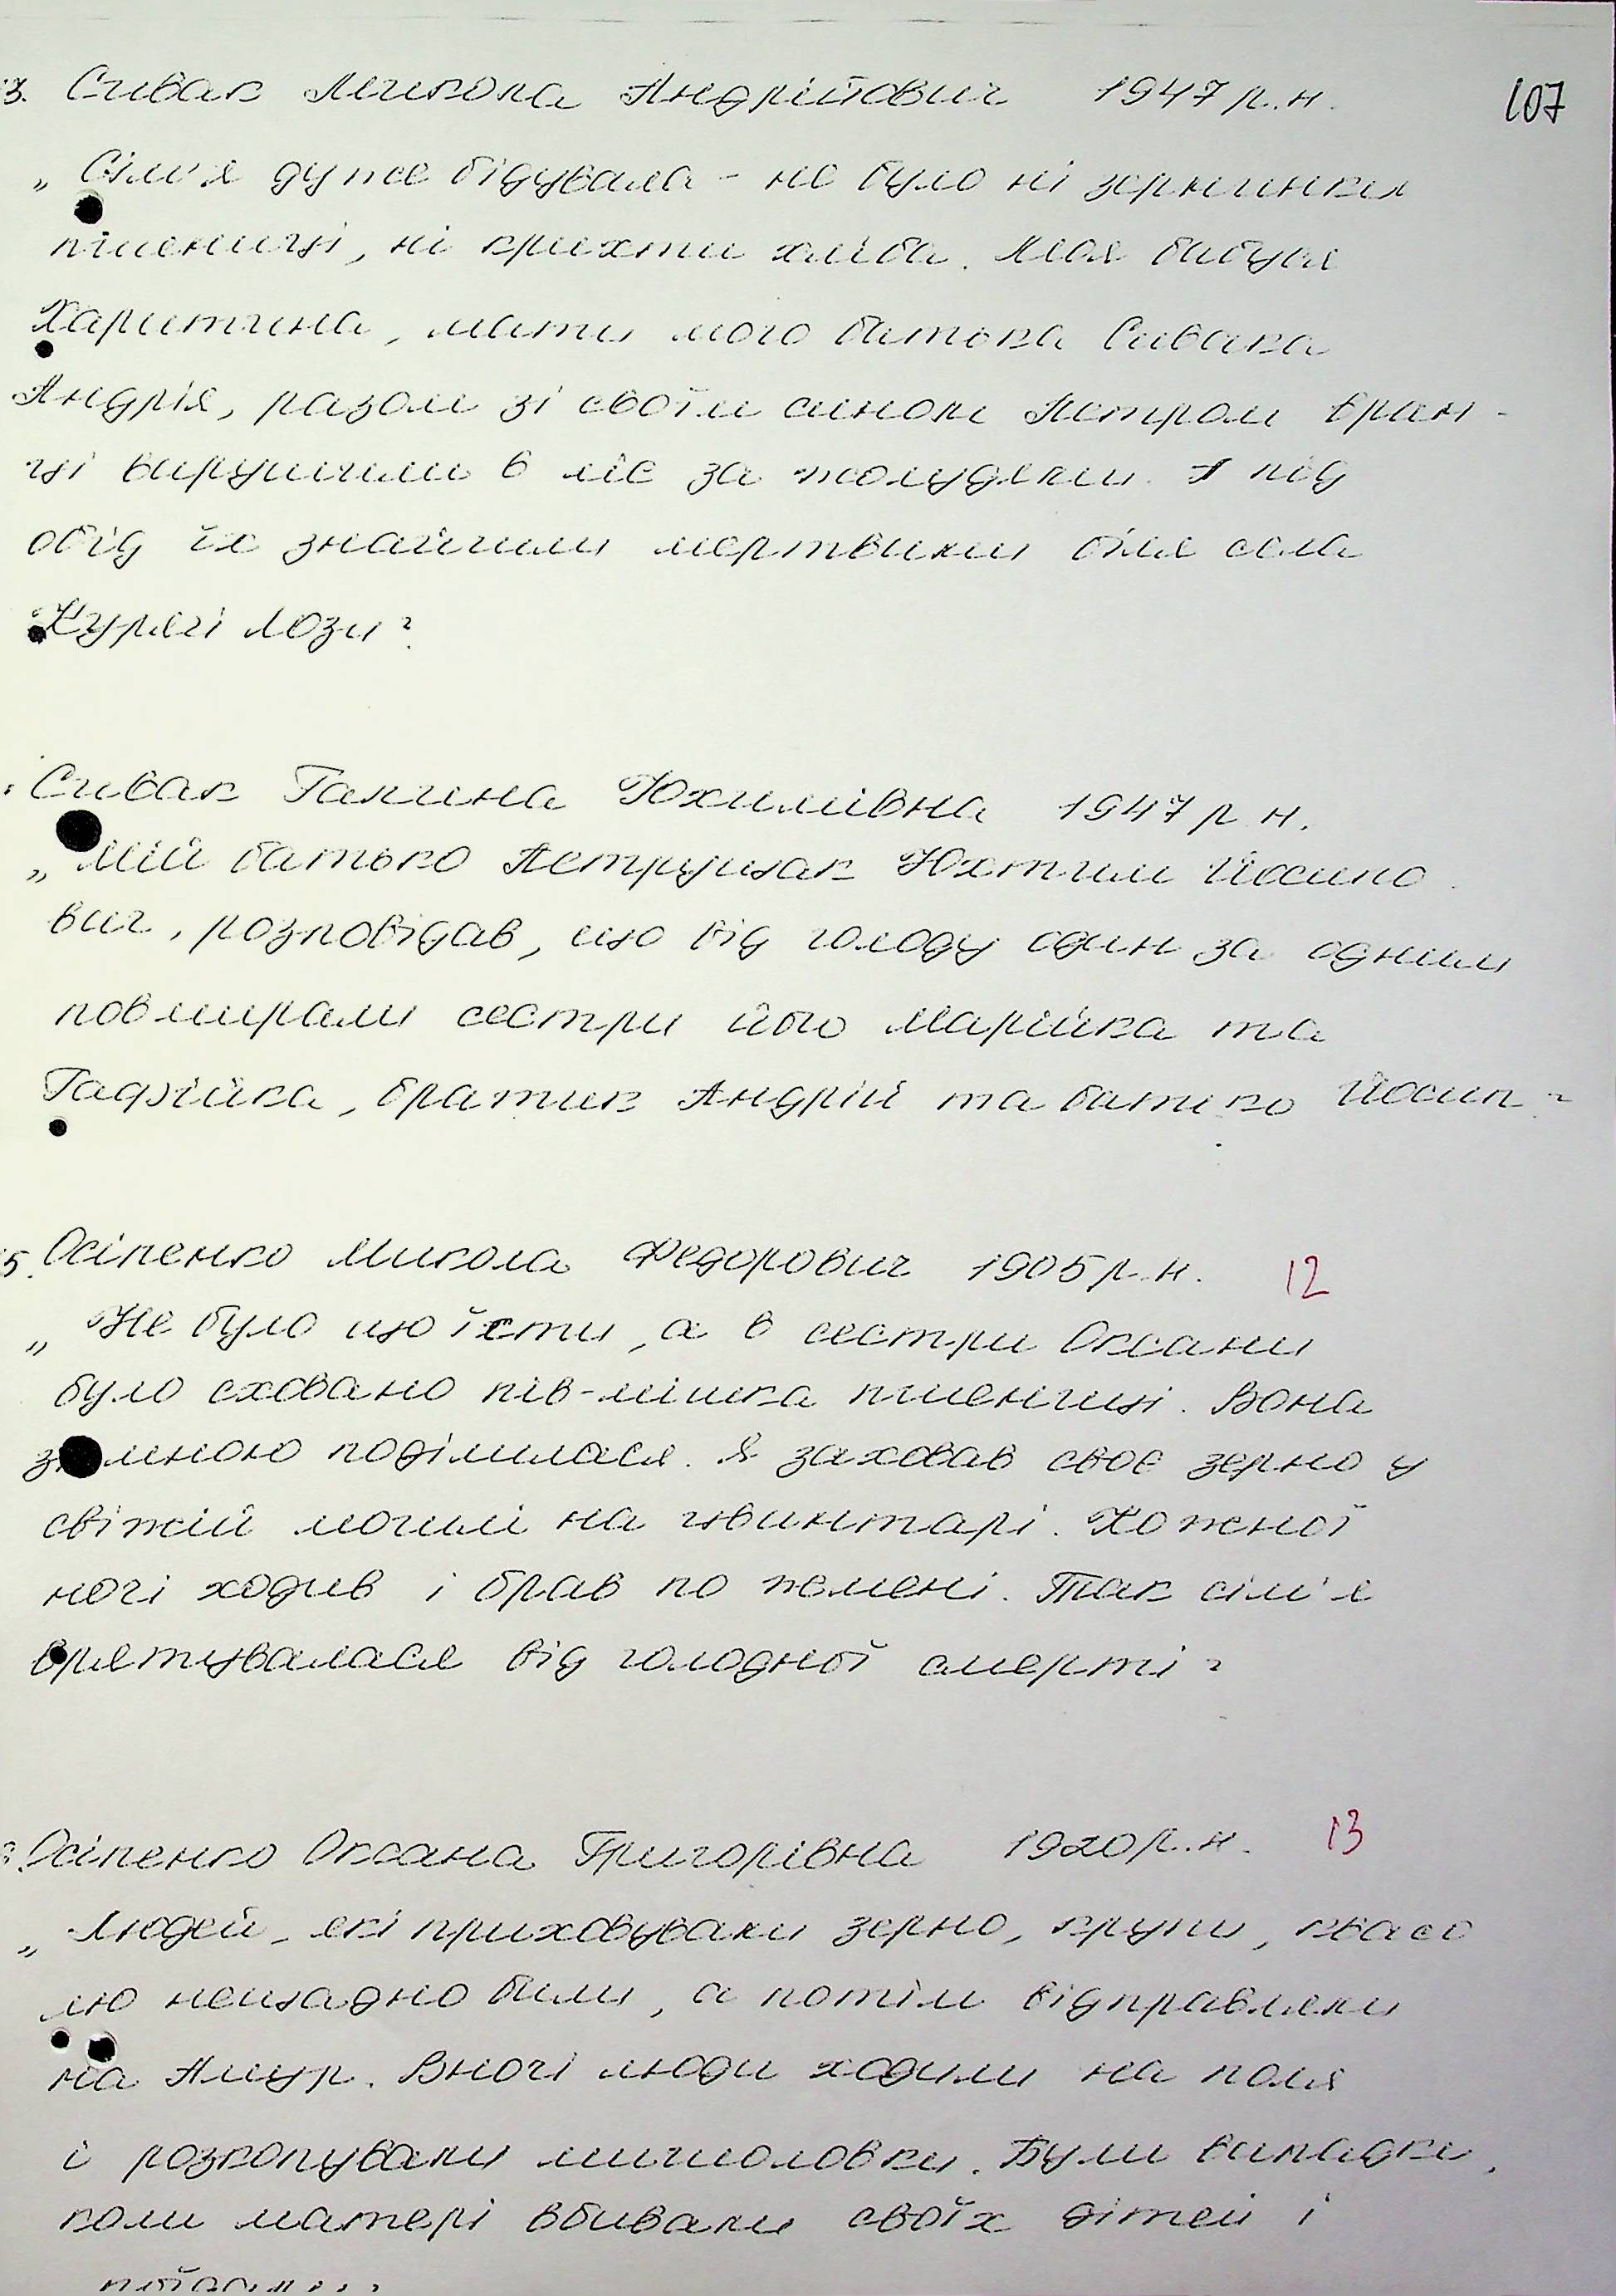 3. Сивак Микола Андрійович 1947 р.н. 107
„ Сім'я дуже бідувала - не було ні зернинки
пшениці, ні крихти хліба. Моя бабуся
Харитина, мати мого батька Сивака
Андрія, разом зі своїм сином Петром вран-
ці вирушили в ліс за жолудями. А під
обід їх знайшли мертвими біля села
Курячі Лози"
Сивак Галина Юхимівна 1947 р.н.
„ Мій батько Петрущак Юхтим Йосипо
вич, розповідав, що від голоду один за одним
повмирали сестри його Марійка та
Гафійка, братик Андрій та батько Йосип"
5. Осіпенко Микола Федорович 1905 р.н. 12
„ Не було що їсти, а в сестри Оксани
було сховано пів-мішка пшениці. Вона
зі мною поділилася. Я заховав своє зерно у
свіжій могилі на цвинтарі. Кожної
ночі ходив і брав по жмені. Так сім'я
врятувалася від голодної смерті"
Осіпенко Оксана Григорівна 1920 р.н. 13
„ Людей, які приховували зерно, крупи, квасо
лю нещадно били, а потім відправляли
на Амур. Вночі люди ходили на поля
і розкопували мишоловки. Були випадки,
коли матері вбивали своїх дітей і